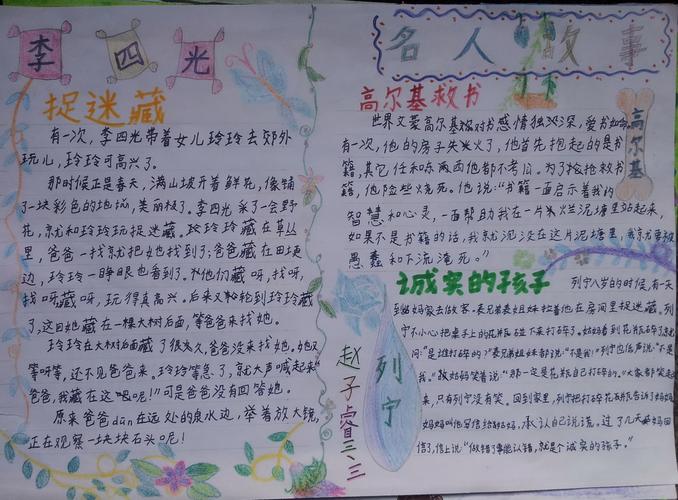 李四光
捉迷藏
有一次，李四光带着女儿玲玲去郊外
玩儿，玲玲可高兴了。
那时候正是春天，满山坡开着鲜花，像铺
了一块彩色的地毯，美丽极了。李四光采了一会野
花，就和玲玲玩捉迷藏。玲玲藏在草丛
里，爸爸一找就把她找到了；爸爸藏在田埂
边，玲玲一睁眼也看到了。他们藏呀，找呀，
找呀藏呀，玩得真高兴。后来又轮到玲玲藏
了，这回她藏在一棵大树后面，等爸爸来找她。
玲玲在大树后面藏了很久，爸爸没来找她，她又
等呀等，还不见爸爸来。玲玲等急了，就大声喊起来
"爸爸，我藏在这呢！"可是爸爸没有回答她。
原来爸爸dūn在远处的泉水边，举着放大镜，
正在观察一块块石头呢！
名人故事
高尔基救书
高尔基
世界文豪高尔基对书感情独深，爱书如命。
有一次，他的房子失火了，他首先抱起的是书
籍，其它任何东西他都不考虑。为了抢救书
籍，他险些烧死。他说："书籍一面启示着我的
智慧和心灵，一面帮助我在一片烂泥塘里站起来，
如果不是书籍的话，我就沉没在这片泥塘里，我就要被
愚蠢和下流淹死。"
诚实的孩子
列宁
列宁八岁的时候，有一天
到姑妈家去做客。表兄弟表姐妹拉着他在房间里捉迷藏。列
宁不小心把桌子上的花瓶碰下来打碎了。姑妈看到花瓶碎了
问："是谁打碎的？"表兄弟姐妹都说："不是我！"列宁也低声说："不是
我。"姑妈笑着说："那一定是花瓶自己打碎的。"大家都笑起
来，只有列宁没有笑。回到家里，列宁把打碎花瓶告诉了妈妈
妈妈叫他写信给姑妈，承认自己说谎。过了几天姑妈回
信了，信上说："做错了事能认错，就是个诚实的孩子。"
赵子睿三、三